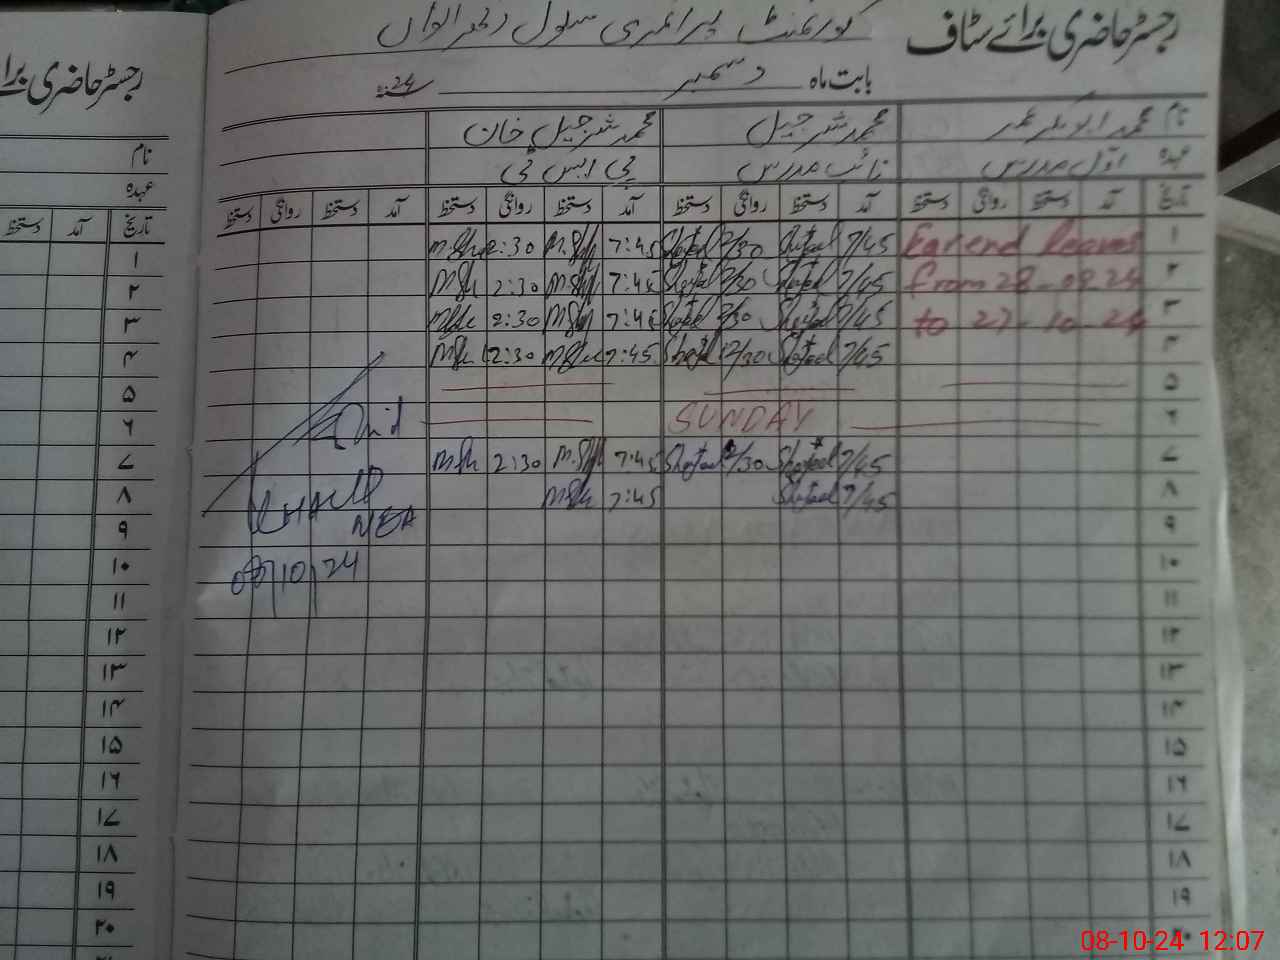 رجسٹر حاضری برائے سٹاف
گورنمنٹ پرائمری سکول
بابت ماہ دسمبر سنہ 24
نام محمد ابوبکر عمر محمد شرجیل محمد شرجیل خان
عہدہ اول مدرس نائب مدرس پی ایس ٹی
تاریخ آمد دستخط روانگی دستخط آمد دستخط روانگی دستخط آمد دستخط روانگی دستخط آمد دستخط روانگی دستخط
۱ Earend leaves 7/45 2/30 7:45 2:30
۲ from 28-09-24 7/45 2/30 7:45 2:30
۳ to 27-10-24 7/45 2/30 7:45 2:30
۴ 7/45 12/30 7:45 12:30
۵
۶ SUNDAY
۷ 7/45 2/30 7:45 2:30
۸ 7/45 7:45
۹ NEA
۱۰ 08/10/24
۱۱
۱۲
۱۳
۱۴
۱۵
۱۶
۱۷
۱۸
۱۹
۲۰
رجسٹر حاضری برائے
نام
عہدہ
تاریخ آمد دستخط
۱
۲
۳
۴
۵
۶
۷
۸
۹
۱۰
۱۱
۱۲
۱۳
۱۴
۱۵
۱۶
۱۷
۱۸
۱۹
۲۰
08-10-24 12:07